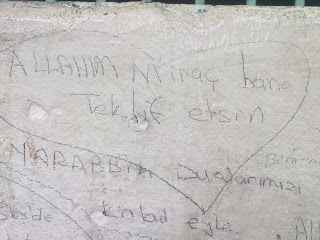 ALLAHIM Miraç bana
Teklif etsin
YARABBİM Dualarımızı
Kabul eyle